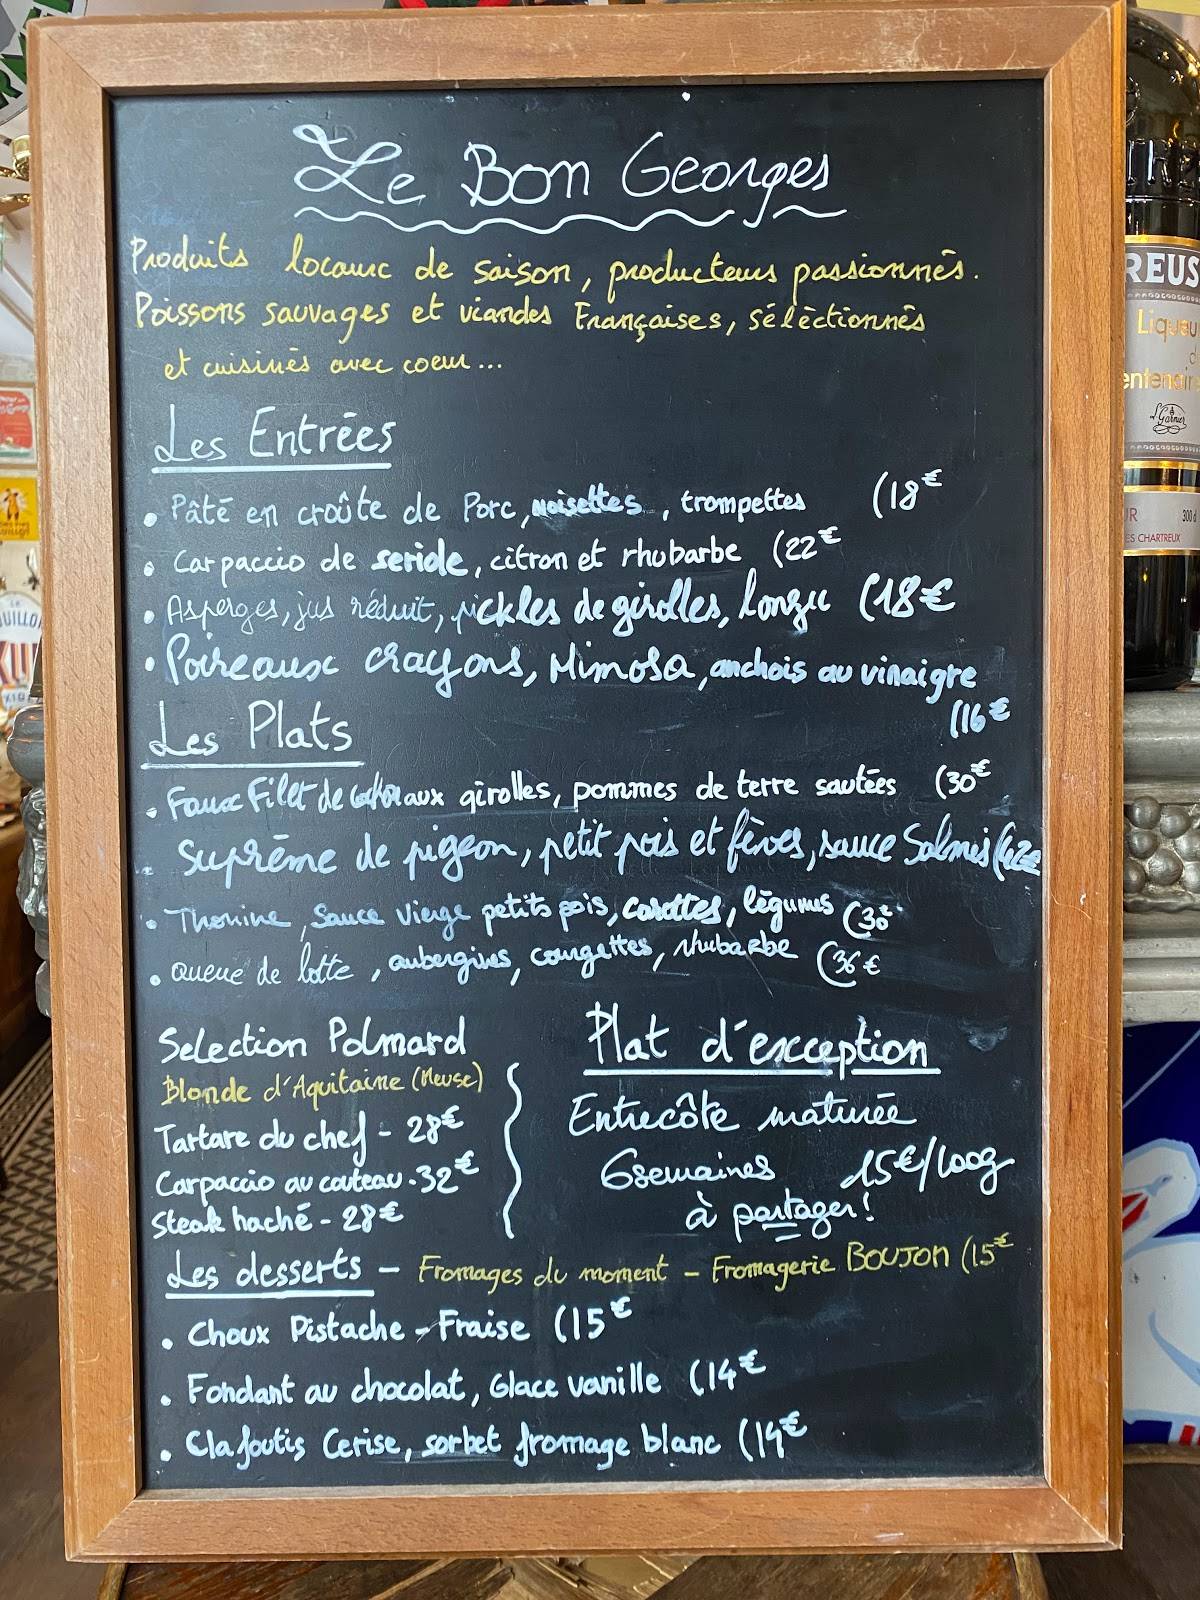 Le Bon Georges
Produits locaux de saison, producteurs passionnés.
Poissons sauvages et viandes Françaises, séléctionnés
et cuisinés avec coeur...
Les Entrées
• Pâté en croûte de Porc, noisettes, trompettes (18€
• Carpaccio de seriole, citron et rhubarbe (22€
• Asperges, jus réduit, pickles de girolles, Lonzu (18€
• Poireaux crayons, Mimosa, anchois au vinaigre
(16€
Les Plats
• Faux Filet de aux girolles, pommes de terre sautées (30€
• Suprême de pigeon, petit pois et fèves, sauce Salmis (42€
• Thonine, Sauce Vierge petits pois, carottes, légumes (30€
• Queue de lotte, aubergines, courgettes, rhubarbe (36€
Selection Polmard
Blonde d'Aquitaine (Meuse)
Tartare du chef - 28€
Carpaccio au couteau - 32€
Steak haché - 28€
Plat d'exception
Entrecôte maturée
6 semaines 15€/100g
à partager!
Les desserts - Fromages du moment - Fromagerie BOUJON (15€
• Choux Pistache - Fraise (15€
• Fondant au chocolat, Glace vanille (14€
• Clafoutis Cerise, sorbet fromage blanc (14€
REUS
Liqueu
d
entenair
L. Garnier
UR 300
ES CHARTREUX